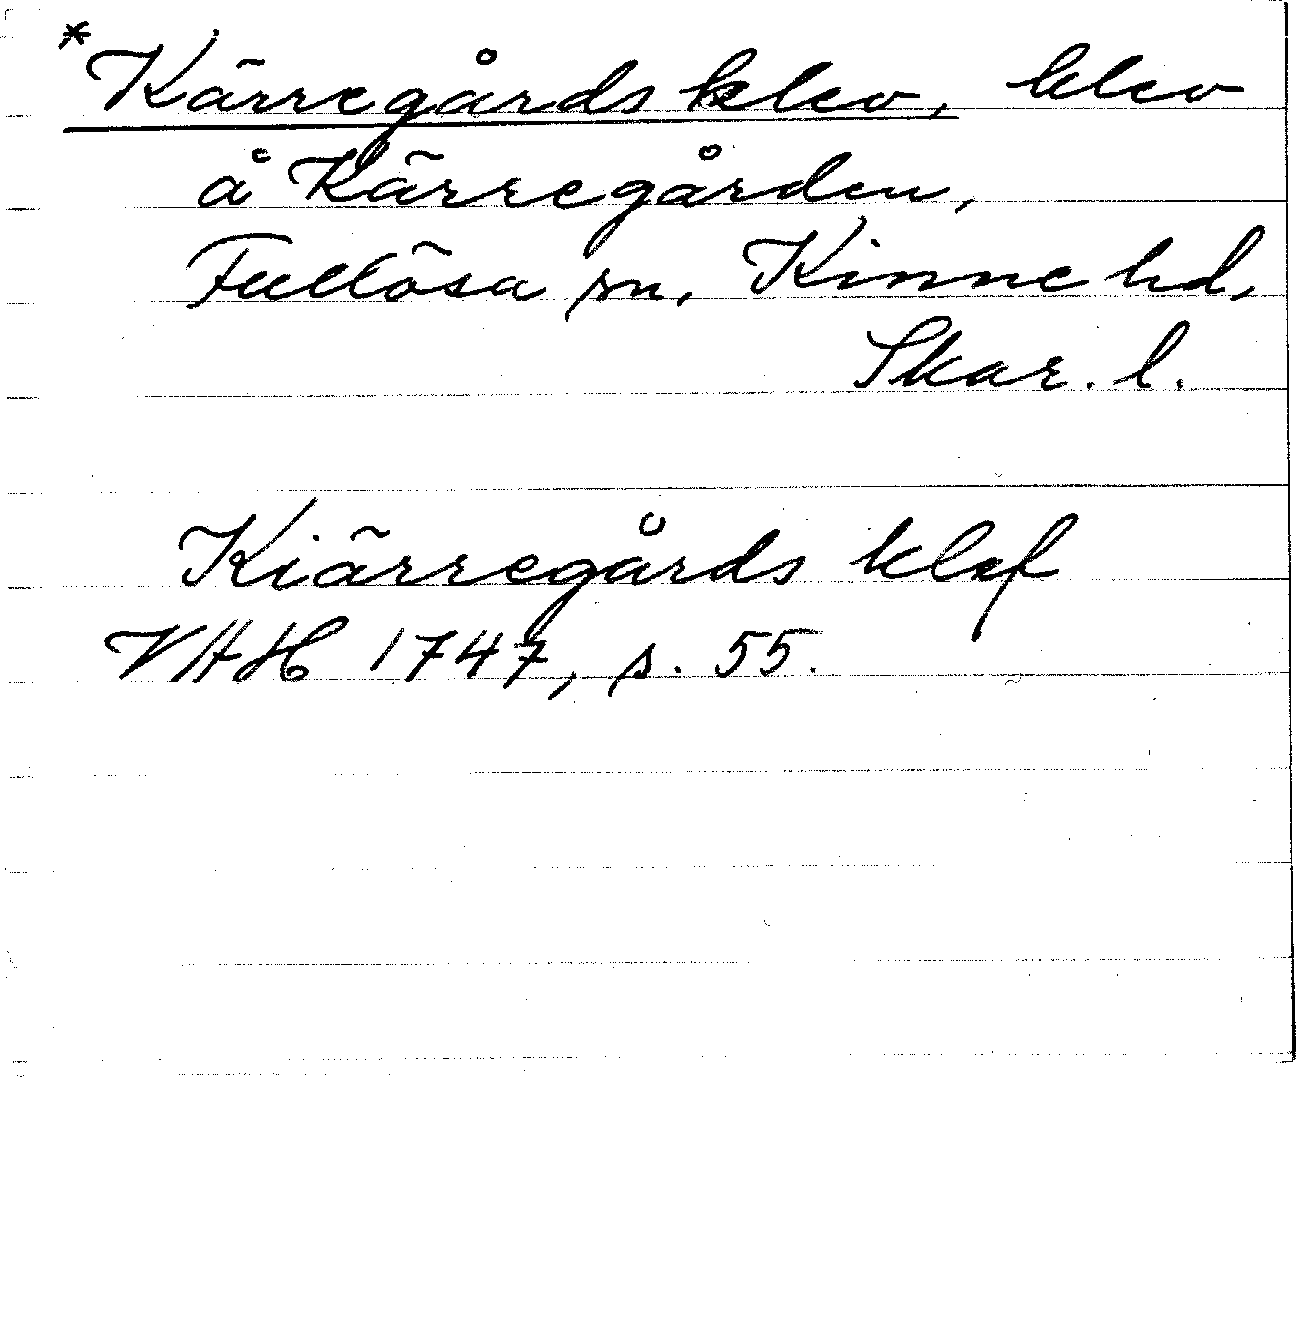 *Kärregårds klev, klev
å Kärregården,
Fullösa sn, Kinne hd,
Skar. l.
Kiärregårds klef
VHH 1747, s. 55.